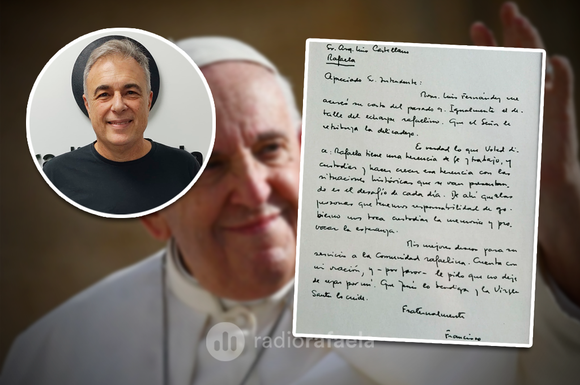 Sr. Arq. Luis Castellano
Rafaela
Apreciado Sr. Intendente:
Mons. Luis Fernández me
acercó su carta del pasado 9. Igualmente el de-
talle del echarpe rafaelino. Que el Señor le
retribuya la delicadeza.
Es verdad lo que Usted di-
ce. Rafaela tiene una herencia de fe y trabajo, y
custodiar y hacer crecer esa herencia con las
situaciones históricas que se van presentan-
do es el desafío de cada día. De ahí que las
personas que tenemos responsabilidad de go-
bierno nos toca custodiar la memoria y pro-
vocar la esperanza.
Mis mejores deseos para su
servicio a la Comunidad rafaelina. Cuenta con
mi oración, y - por favor - le pido que no deje
de rezar por mí. Que Jesús lo bendiga y la Virgen
Santa lo cuide.
Fraternalmente
Francisco
radiorafaela